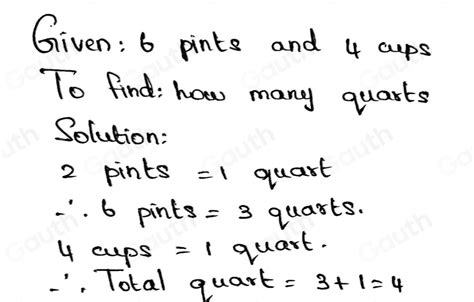 Given: 6 pints and 4 cups
To find: how many quarts
Solution:
2 pints = 1 quart
∴ 6 pints = 3 quarts.
4 cups = 1 quart.
∴ Total quart = 3+1=4